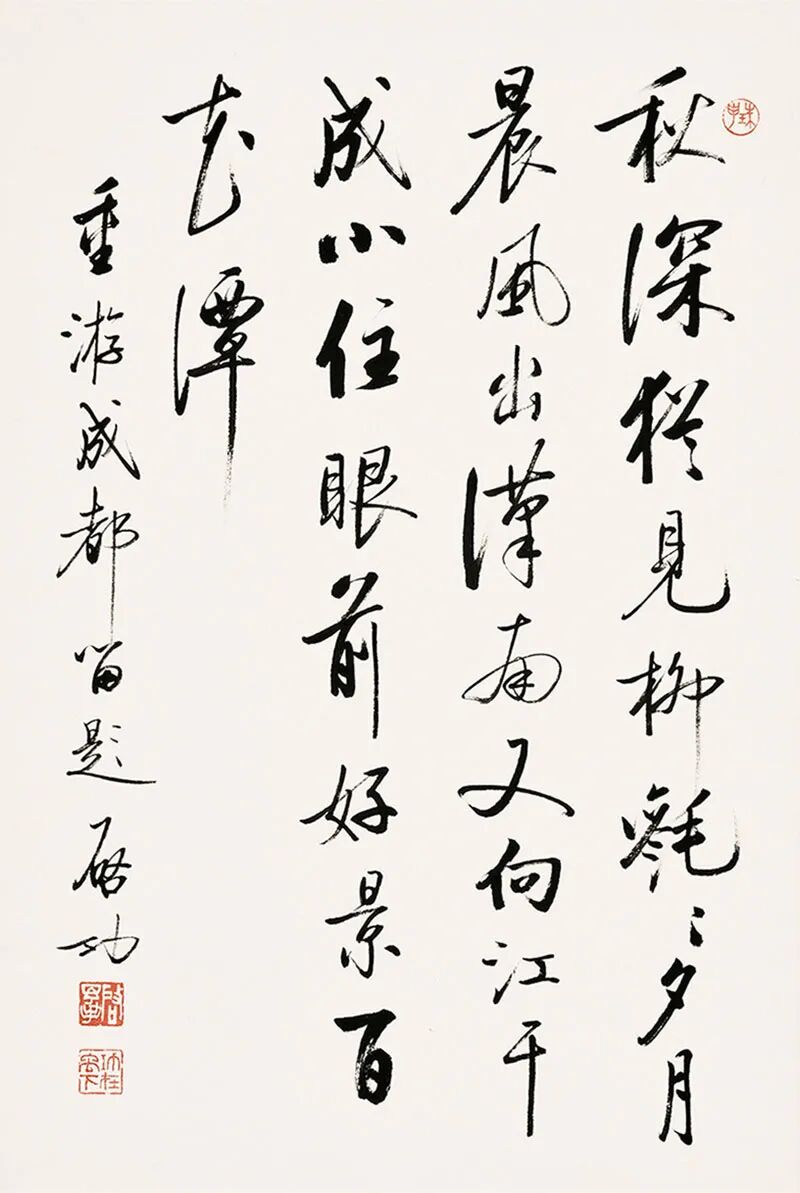 珠申
秋深猶見柳毿〻夕月
晨風出漢南又向江干
成小住眼前好景百
花潭
重游成都留題 啟功
啟功